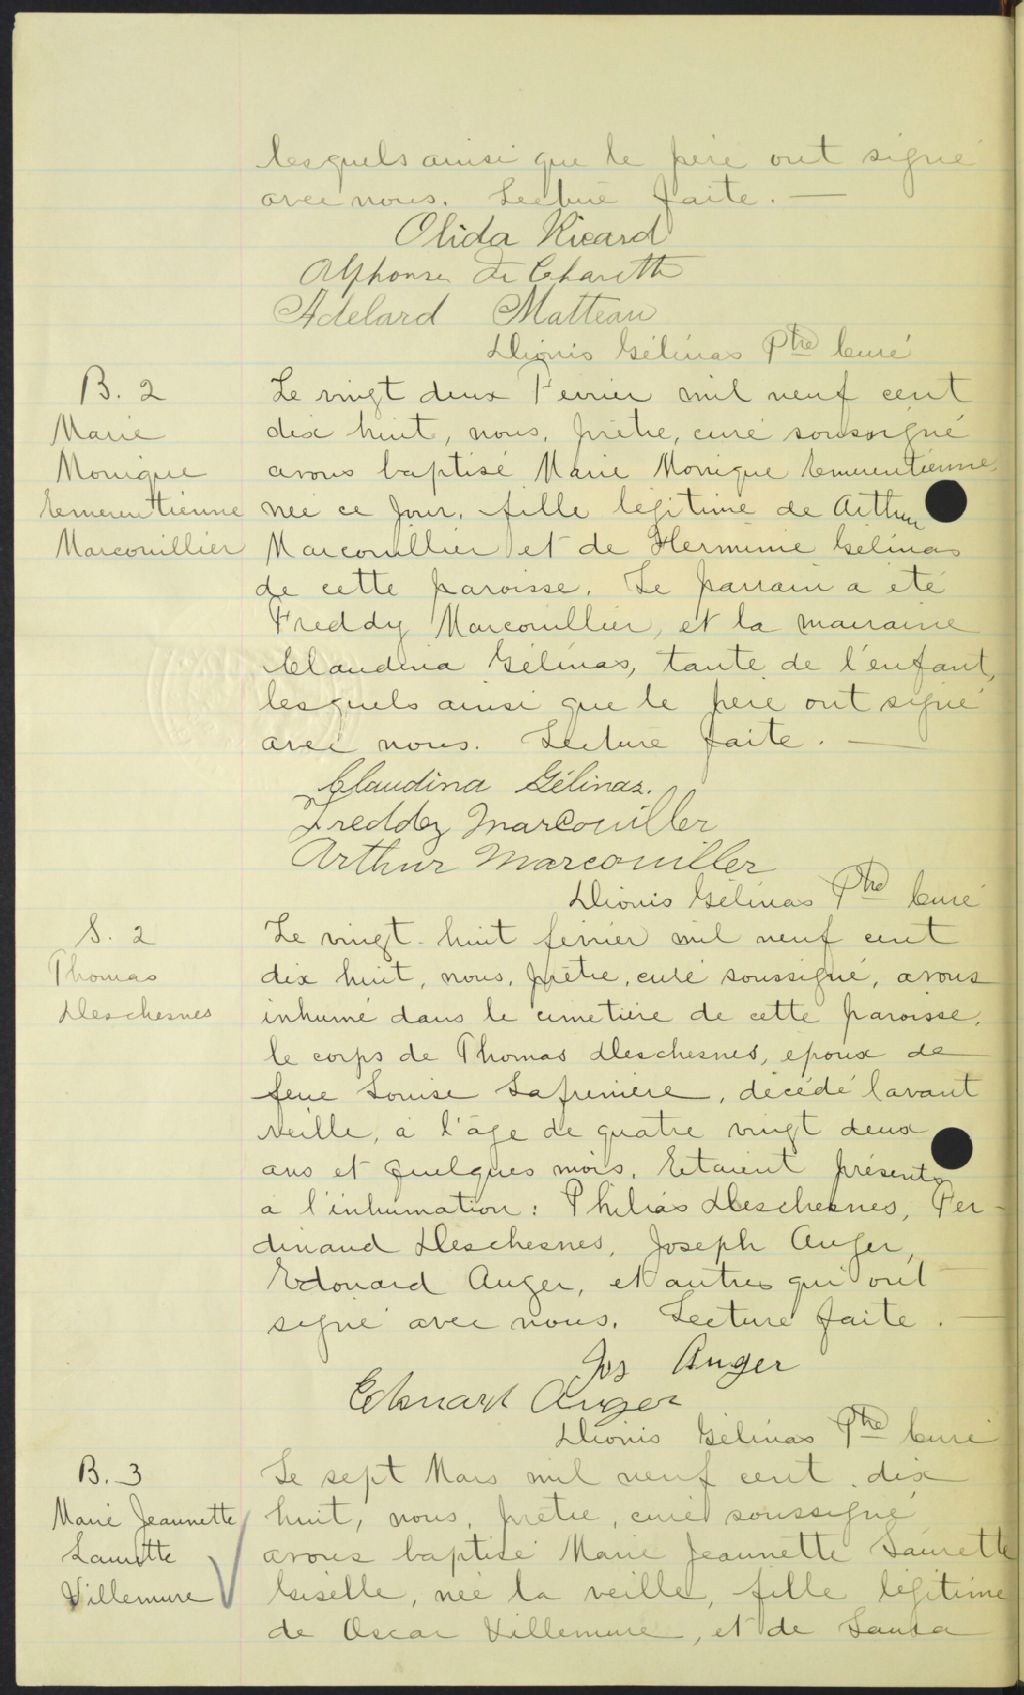 lesquels ainsi que le père ont signé
avec nous. Lecture faite. —
Olida Ricard
Alphonse de Charette
Adelard Matteau
Dionis Gélinas Ptre Curé
B. 2
Marie
Monique
Emerentienne
Marcouillier
Le vingt deux Fevrier mil neuf cent
dix huit, nous, prêtre, curé soussigné
avons baptisé Marie Monique Emerentienne
née ce jour, fille légitime de Arthur
Marcouillier et de Hermine Gélinas
de cette paroisse. Le parrain a été
Freddy Marcouillier, et la marraine
Claudina Gélinas, tante de l'enfant,
lesquels ainsi que le père ont signé
avec nous. Lecture faite. —
Claudina Gélinas.
Freddy Marcouiller
Arthur Marcouiller
Dionis Gélinas Ptre Curé
S. 2
Thomas
Deschesnes
Le vingt-huit fevrier mil neuf cent
dix huit, nous, prêtre, curé soussigné, avons
inhumé dans le cimetière de cette paroisse,
le corps de Thomas Deschesnes, epoux de
feue Louise Lafrenière, décédé l'avant
veille, a l'âge de quatre vingt deux
ans et quelques mois. Etaient présents
a l'inhumation: Philias Deschesnes, Fer-
dinand Deschesnes, Joseph Auger,
Edouard Auger, et autres qui ont
signé avec nous. Lecture faite. —
Jos Auger
Edouard Auger
Dionis Gélinas Ptre Curé
B. 3
Marie Jeannette
Laurette
Villemure
Le sept Mars mil neuf cent dix
huit, nous, prêtre, curé soussigné
avons baptisé Marie Jeannette Laurette
Giselle, née la veille, fille légitime
de Oscar Villemure, et de Laura